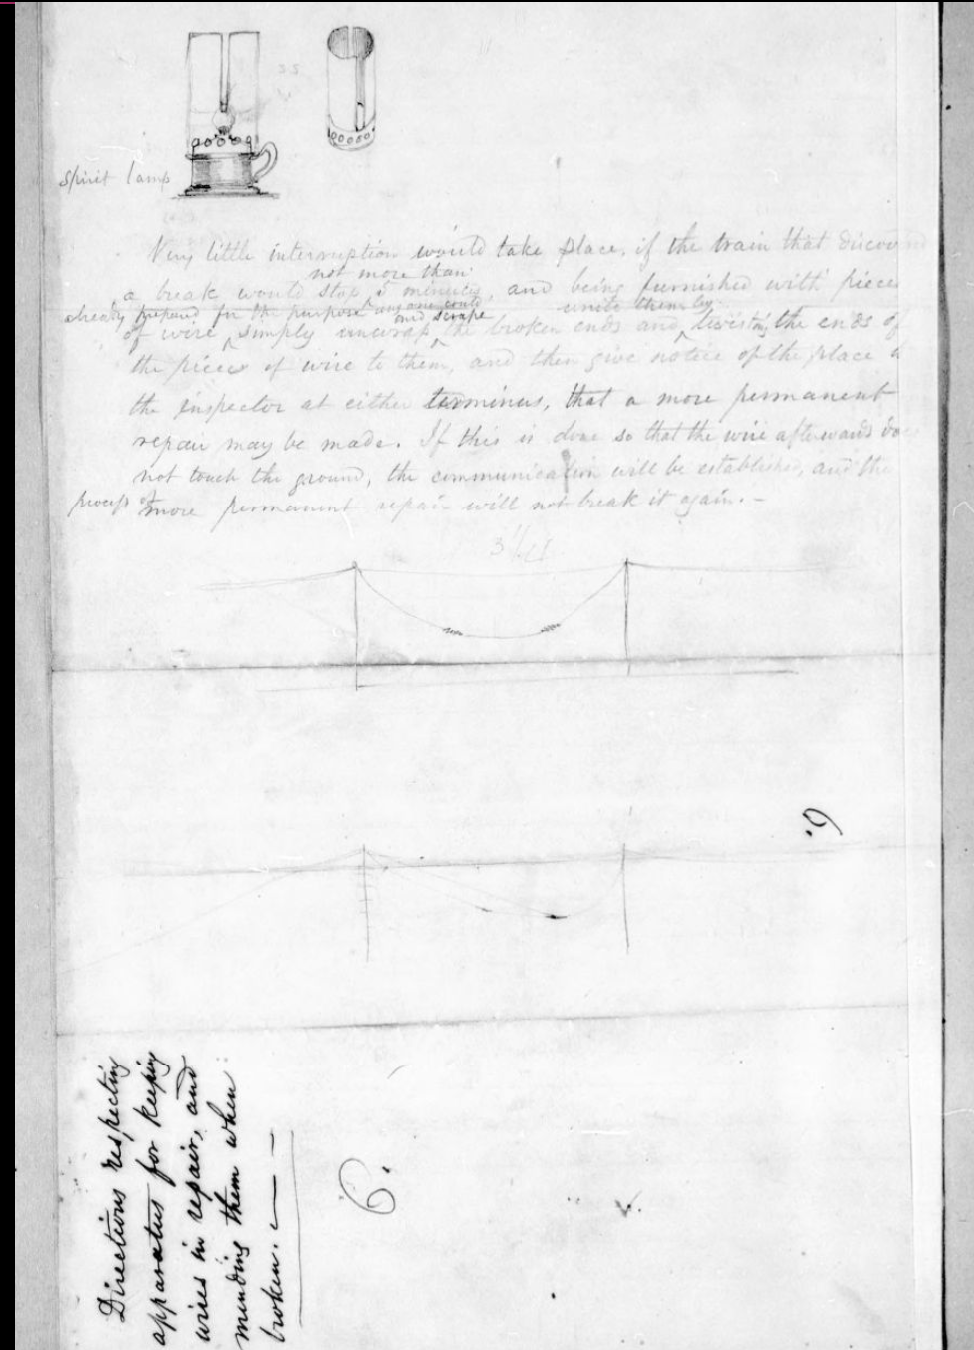 spirit lamp
Very little interruption would take place, if the train that discovered
not more than
a break would stop 5 minutes, and being furnished with pieces
already prepared for the purpose any one could unite them by
and scrape
of wire simply unwrap the broken ends and twisting the ends of
the pieces of wire to them, and then give notice of the place to
the inspector at either terminus, that a more permanent
repair may be made. If this is done so that the wire afterwards does
not touch the ground, the communication will be established, and the
process of
more permanent repair will not break it again. –
6.
Directions respecting
apparatus for keeping
wires in repair, and
mending them when
broken. — –
6.